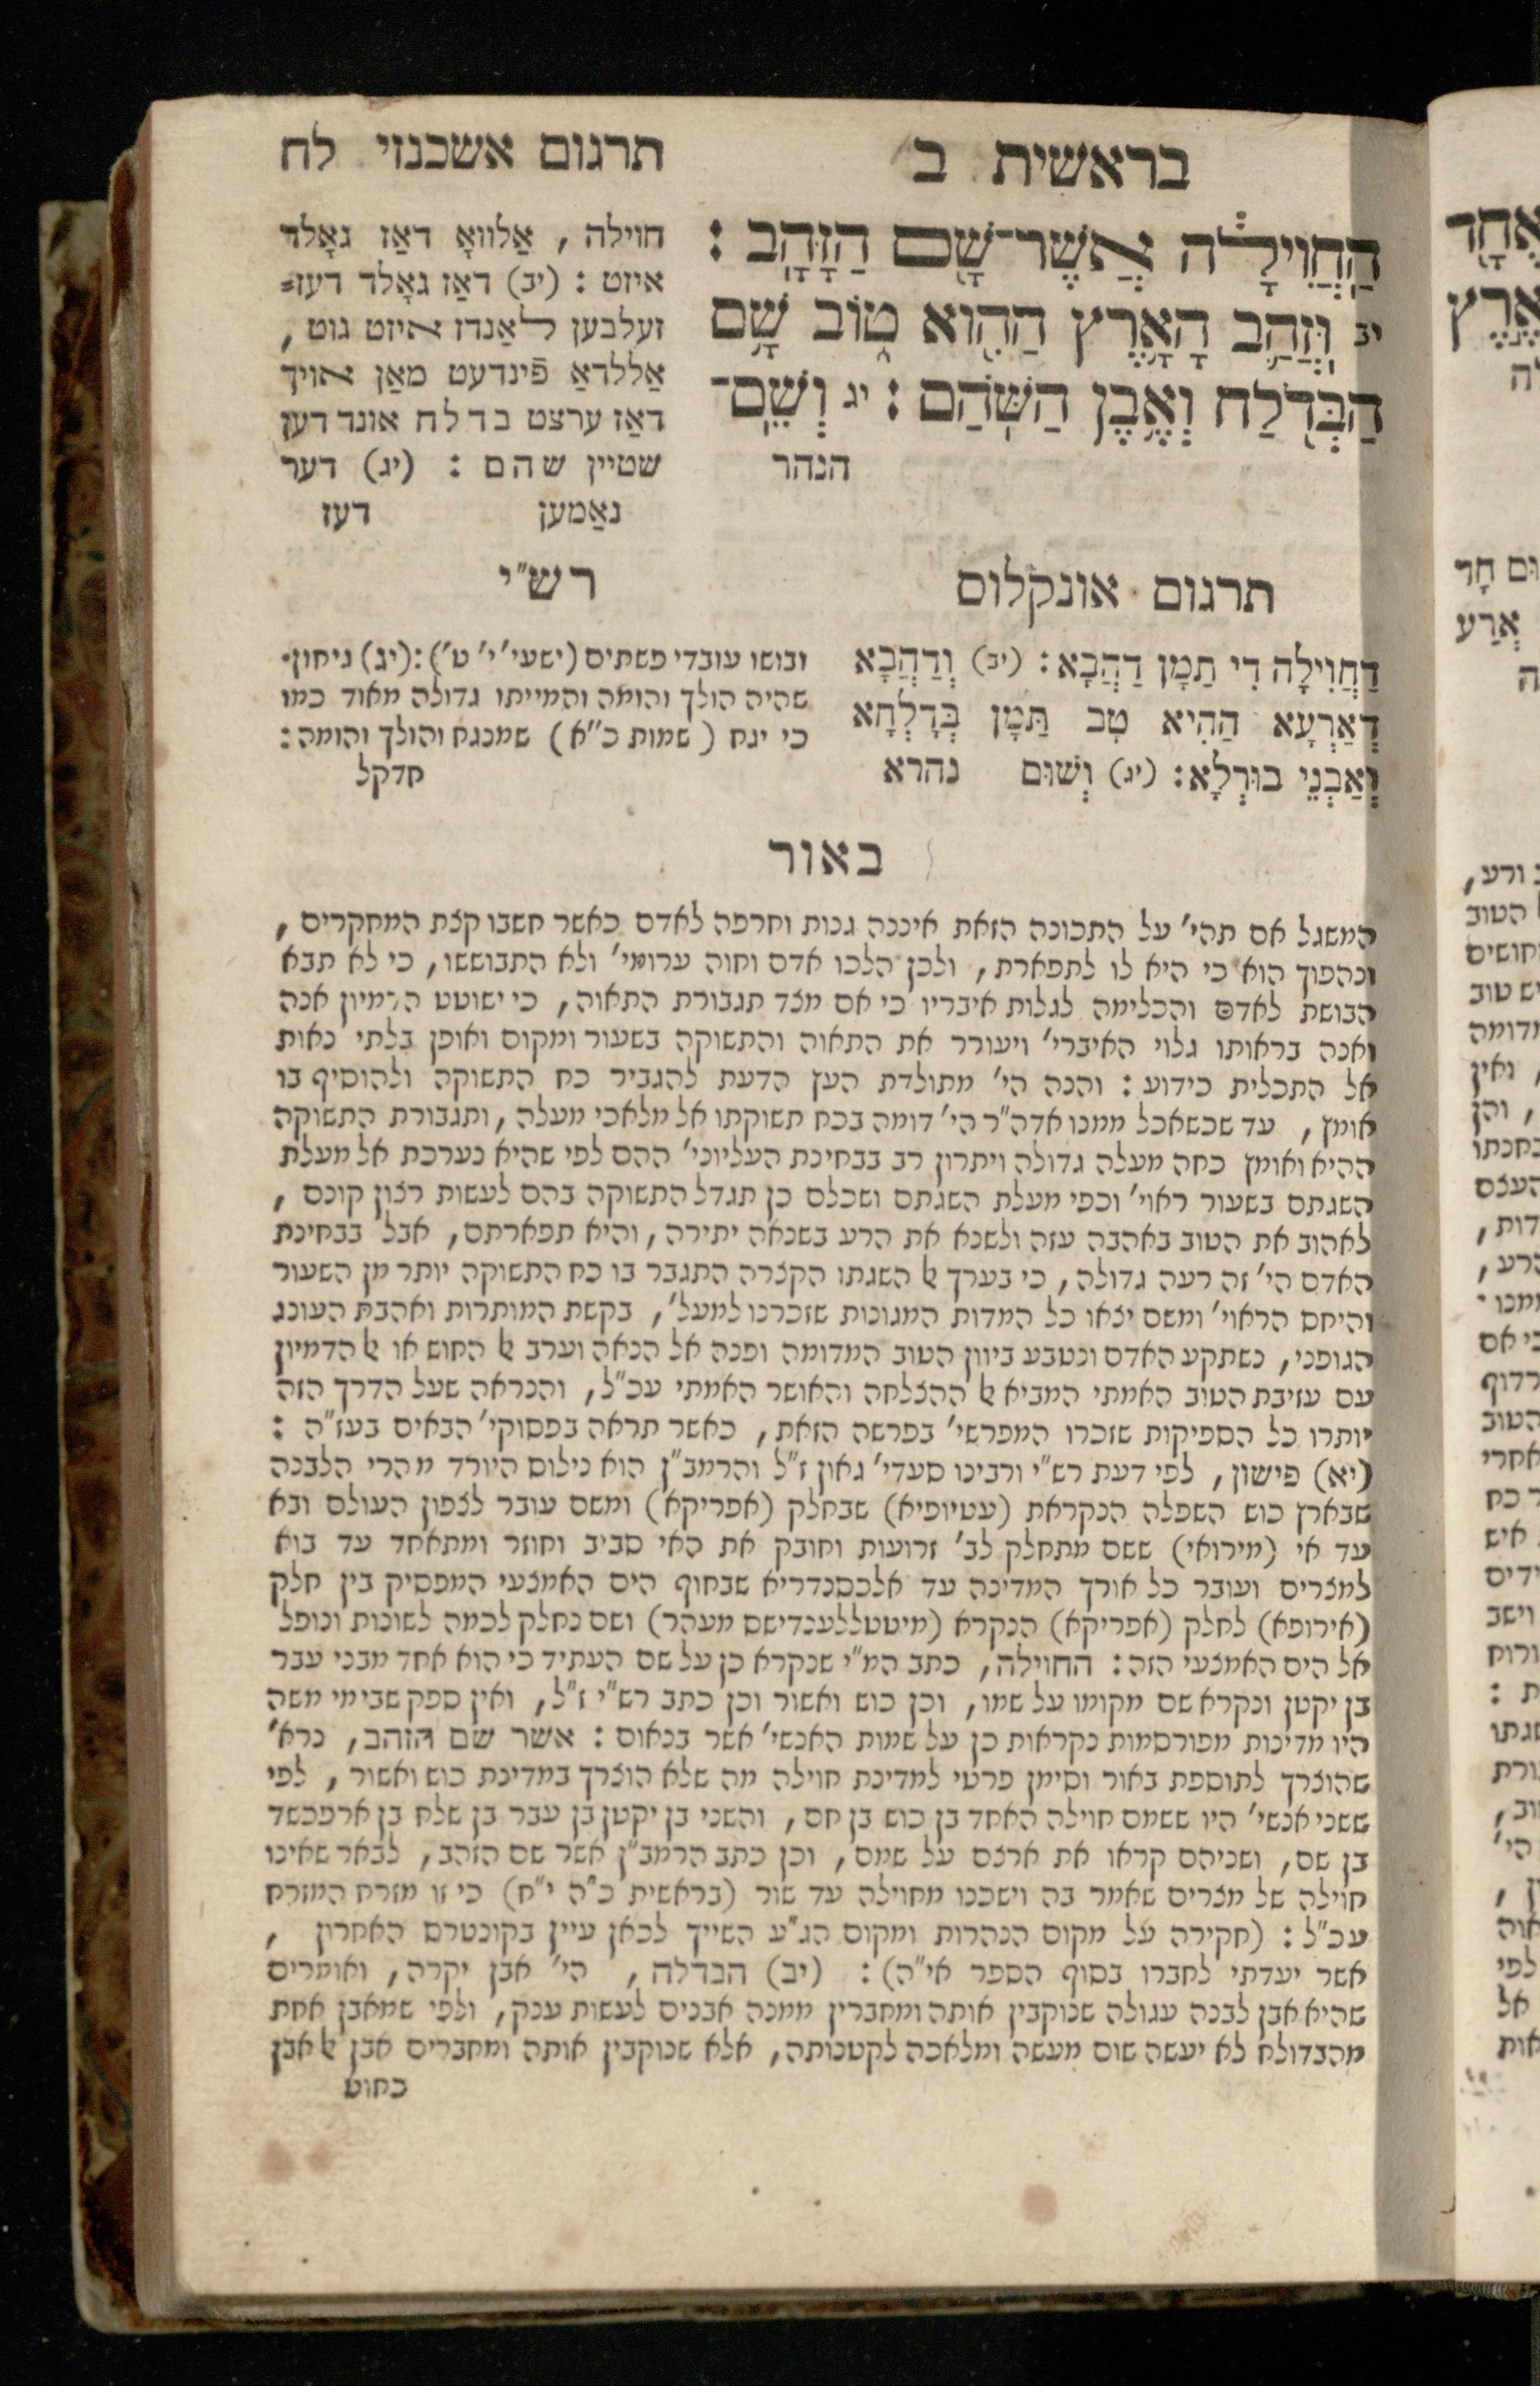 בראשית ב
תרגום אשכנזי לח
הַחֲוִילָ֔ה אֲשֶׁר־שָׁ֖ם הַזָּהָֽב :
יב וּֽזֲהַ֛ב הָאָ֥רֶץ הַהִ֖וא ט֑וֹב שָׁ֥ם
הַבְּדֹ֖לַח וְאֶ֥בֶן הַשֹּֽׁהַם : יג וְשֵֽׁם־
הנהר
חוילה , אַלוואָ דאַז גאָלד
איזט : (יב) דאַז גאָלד דעז=
זעלבען לאַנדז איזט גוט ,
אַללדאַ פֿינדעט מאַן אויך
דאַז ערצט בדלח אונד דען
שטיין שהם : (יג) דער
נאַמען דעז
תרגום אונקלוס
דַחֲוִילָה דִי תַמָן דַהֲבָא : (יב) וְדַהֲבָא
דְאַרְעָא הַהִיא טָב תַּמָן בְּדָלְחָא
וְאַבְנֵי בוּרְלָא : (יג) וְשׁוּם נהרא
רש"י
ובושו עובדי פשתים (ישעי' י' ט') : (יג) גיחון.
שהיה הולך והומה והמייתו גדולה מאוד כמו
כי יגח (שמות כ"א) שמנגח והולך והומה :
חדקל
באור
המשגל אם תהי' על התכונה הזאת איננה גנות וחרפה לאדם כאשר חשבו קצת המחקרים ,
ובהפוך הוא כי היא לו לתפארת , ולכן הלכו אדם וחוה ערומי' ולא התבוששו , כי לא תבא
הבושת לאדם והכלימה לגלות איבריו כי אם מצד תגבורת התאוה , כי ישוטט הדמיון אנה
ואנה בראותו גלוי האיברי' ויעורר את התאוה והתשוקה בשעור ומקום ואופן בלתי נאות
אל התכלית כידוע : והנה הי' מתולדת העץ הדעת להגביר כח התשוקה ולהוסיף בו
אומץ , עד שכשאכל ממנו אדה"ר הי' דומה בכח תשוקתו אל מלאכי מעלה , ותגבורת התשוקה
ההיא ואומץ כחה מעלה גדולה ויתרון רב בבחינת העליוני' ההם לפי שהיא נערכת אל מעלת
השגתם בשעור ראוי' וכפי מעלת השגתם ושכלם כן תגדל התשוקה בהם לעשות רצון קונם ,
לאהוב את הטוב באהבה עזה ולשנא את הרע בשנאה יתירה , והיא תפארתם , אבל בבחינת
האדם הי' זה רעה גדולה , כי בערך אל השגתו הקצרה התגבר בו כח התשוקה יותר מן השעור
והיחס הראוי' ומשם יצאו כל המדות המגונות שזכרנו למעל' , בקשת המותרות ואהבת העונג
הגופני , נשתקע האדם ונטבע ביוון הטוב המדומה ופנה אל הנאה וערב אל החוש או אל הדמיון
עם עזיבת הטוב האמתי המביא אל ההצלחה והאושר האמתי עכ"ל , והנראה שעל הדרך הזה
יותרו כל הספיקות שזכרו המפרשי' בפרשה הזאת , כאשר תראה בפסוקי' הבאים בעז"ה :
(יא) פישון , לפי דעת רש"י ורבינו סעדי' גאון ז"ל והרמב"ן הוא נילוס היורד מהרי הלבנה
שבארץ כוש השפלה הנקראת (עטיופיא) שבחלק (אפריקא) ומשם עובר לצפון העולם ובא
עד אי (מירואי) ששם מתחלק לב' זרועות וחובק את האי סביב וחוזר ומתאחד עד בוא
למצרים ועובר כל אורך המדינה עד אלכסנדריא שבחוף הים האמצעי המפסיק בין חלק
(אירופא) לחלק (אפריקא) הנקרא (מיטטללענדישס מעהר) ושם נחלק לכמה לשונות ונופל
אל הים האמצעי הזה : החוילה , כתב המ"י שנקרא כן על שם העתיד כי הוא אחד מבני עבר
בן יקטן ונקרא שם מקומו על שמו , וכן כוש ואשור וכן כתב רש"י ז"ל , ואין ספק שבימי משה
היו מדינות מפורסמות נקראות כן על שמות האנשי' אשר בנאום : אשר שם הזהב , נרא'
שהוצרך לתוספת באור וסימן פרטי למדינת חוילה מה שלא הוצרך במדינת כוש ואשור , לפי
ששני אנשי' היו ששמם חוילה האחד בן כוש בן חם , והשני בן יקטן בן עבר בן שלח בן ארפכשד
בן שם , ושניהם קראו את ארצם על שמם , וכן כתב הרמב"ן אשר שם הזהב , לבאר שאינו
חוילה של מצרים שאמר בה וישכנו מחוילה עד שור (בראשית כ"ה י"ח) כי זו מזרח המזרח
עכ"ל : (חקירה על מקום הנהרות ומקום הג"ע השייך לכאן עיין בקונטרס האחרון ,
אשר יעדתי לחברו בסוף הספר אי"ה) : (יב) הבדלה , הי' אבן יקרה , ואומרים
שהיא אבן לבנה עגולה שנוקבין אותה ומחברין ממנה אבנים לעשות ענק , ולפי שמאבן אחת
מהבדולח לא יעשה שום מעשה ומלאכה לקטנותה , אלא שנוקבין אותה ומחברים אבן אל אבן
כחוט